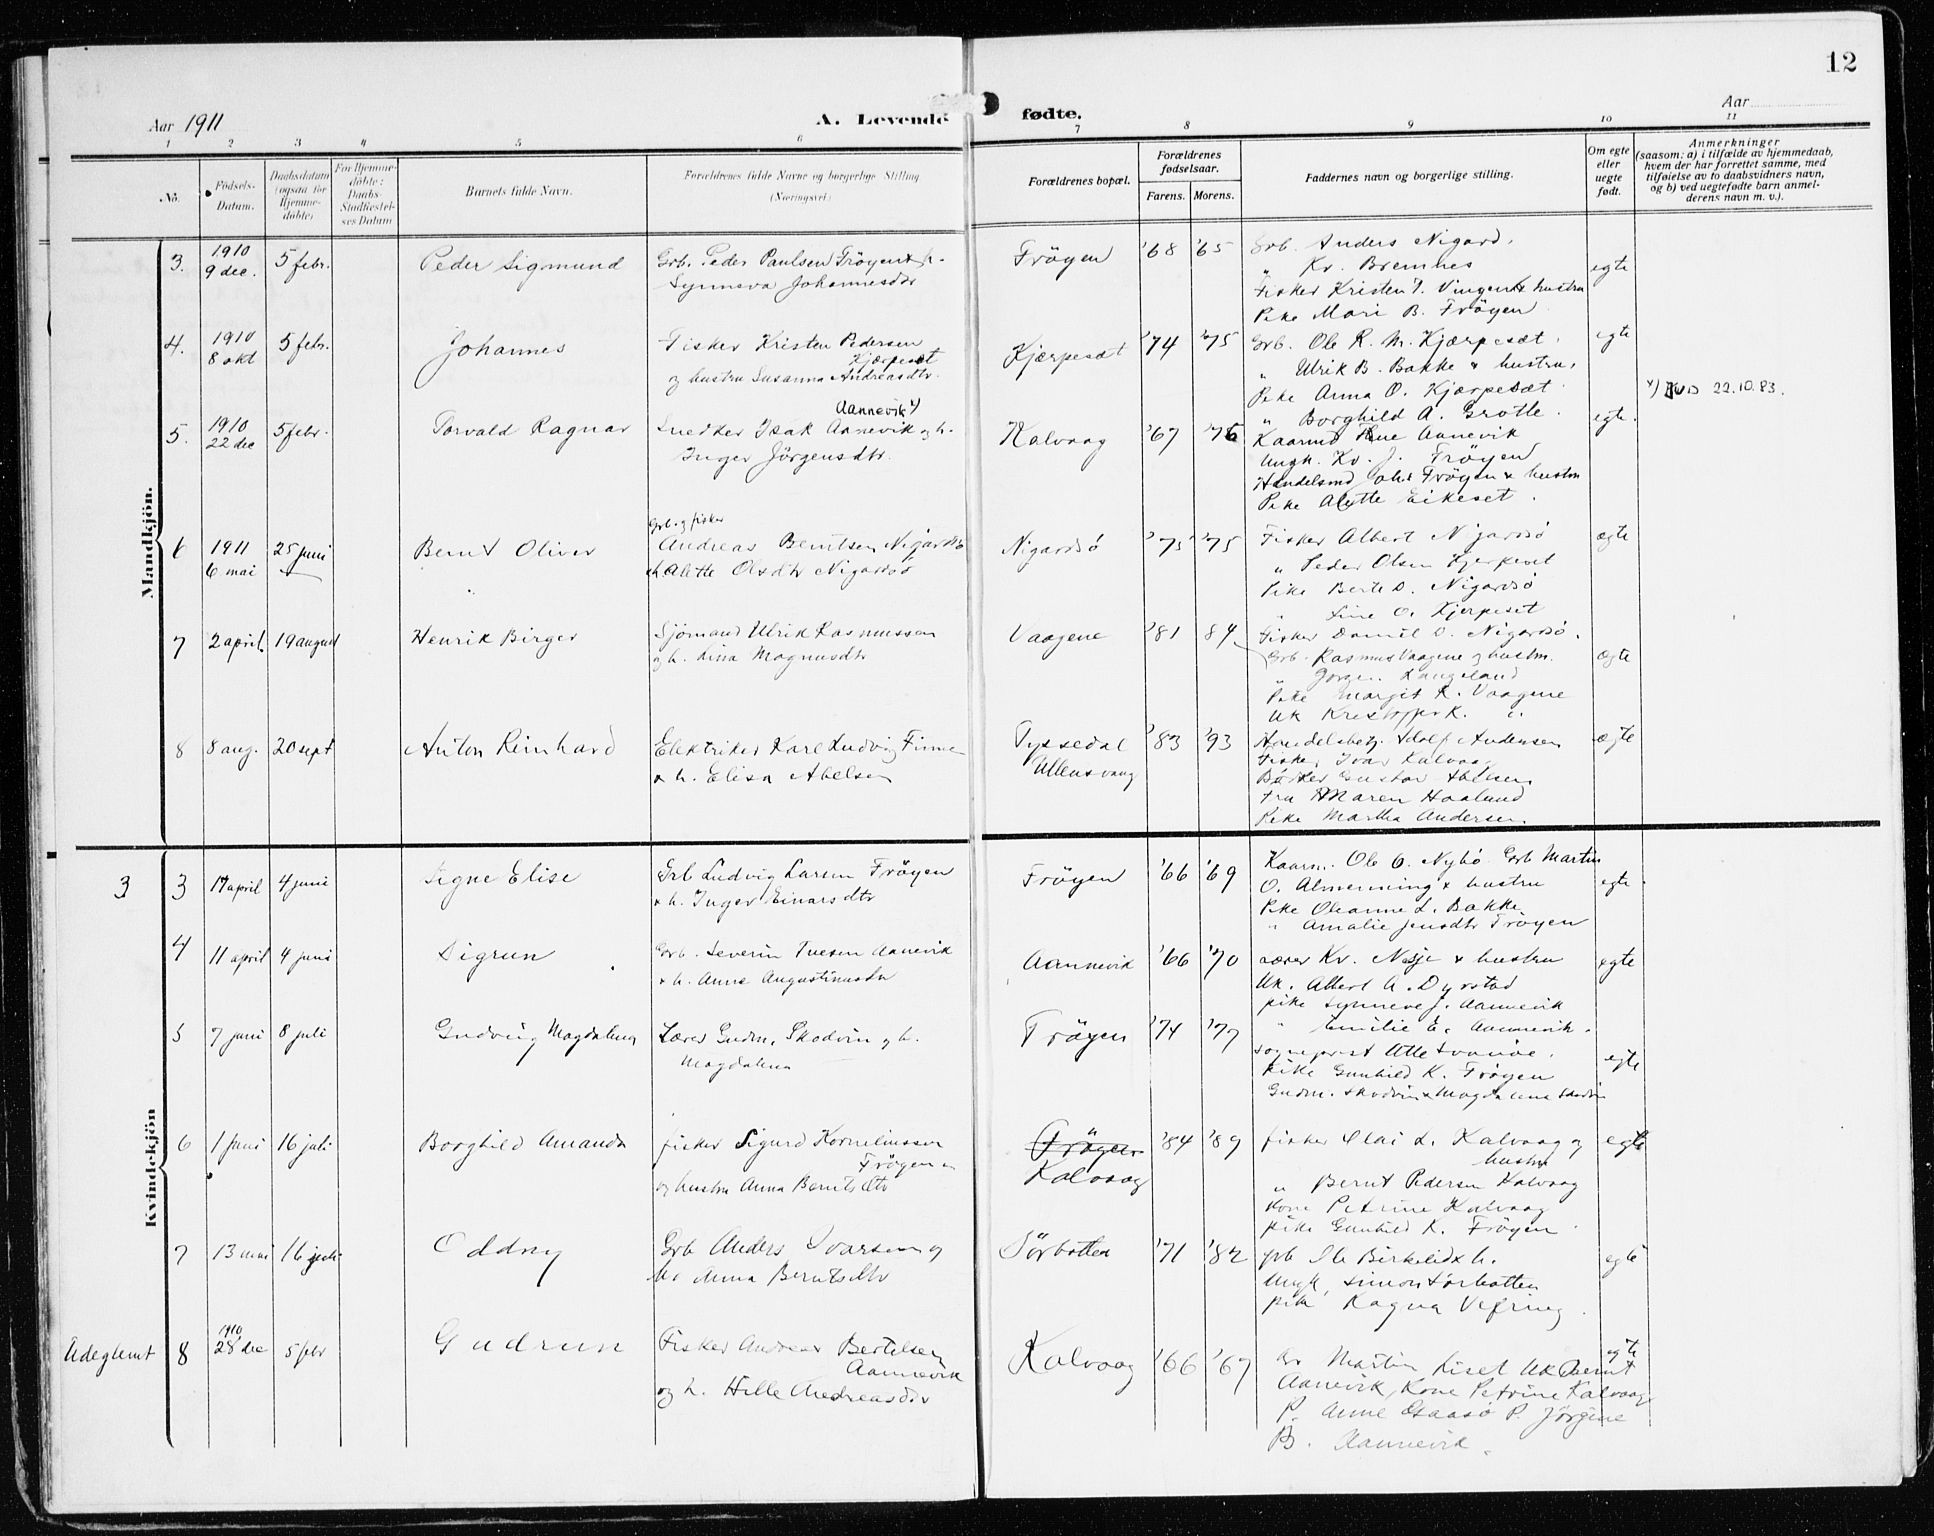 12
Aar 1911
A. Levende fødte.
Aar
1 2 3 4 5 6 7 8 9 10 11
No.
Fødsels-
Datum.
Daabsdatum
(ogsaa for
Hjemme-
døbte)
For Hjemme-
døbte:
Daabs
Stadfæstel-
ses Datum
Barnets fulde Navn.
Forældrenes fulde Navne og borgerlige Stilling
(Næringsvei)
Forældrenes bopæl.
Forældrenes
fødselsaar.
Farens. Morens.
Faddernes navn og borgerlige stilling.
Om egte
eller
uegte
født.
Anmerkninger
(saasom: a) i tilfælde av hjemmedaab,
hvem der har forrettet samme, med
tilføielse av to daabsvidners navn,
og b) ved uegtefødte barn anmel-
derens navn m. v.).
Mandkjön.
3. 1910 9 dec. 5 febr. Peder Sigmund
Grb. Peder Paulsen Frøyen & h.
Synneva Johannesdtr
Frøyen '68 '65
Grb. Anders Nigard.
„ Kr. Bremnes
Fisker Kristen I. Vingen & hustru
Pike Mari B. Frøyen
egte
4. 1910 8 okt 5 febr. Johannes
Fisker Kristen Pedersen
Kjærpeset
og hustru Susanna Andreasdtr.
Kjærpesæt '74 '75
Grb. Ole R. M. Kjærpesæt.
„ Ulrik B. Bakke & hustru,
Pike Anna O. Kjærpesæt.
„ Borghild A. Grotle.
egte
5. 1910 22 dec 5 febr. Torvald Ragnar
Aannevik x)
Snedker Isak Aannevik og h.
Inger Jørgensdtr.
Kalvaag '67 '76
Kaarmd Aannevik
Ungk. Kr. J. Frøyen
Handelsmd Joh. Frøyen & hustru
Pike Alette Eikeset.
egte.
x) 22.10.83.
6 1911 6 mai 25 juni Bernt Oliver
Grb. og fisker
Andreas Berntsen Nigardsø
& h. Alette Olsdtr Nigardsø
Nigardsø '75 '75
Fisker Albert Nigardsø
„ Peder Olsen Kjerpeset
Pike Berte D. Nigardsø
„ Line O. Kjerpeset
ægte
7 2 april 19 august Henrik Birger
Sjömand Ulrik Rasmussen
og h. Lina Magnusdtr
Vaagene '81 84
Fisker Daniel O. Nigardsø.
Grb. Rasmus Vaagene og hustru.
„ Langeland
Pike Margit R. Vaagene
Uk Kristoffer K. „
ægte
8 8 aug. 20 sept Anton Reinhard
Elektriker Karl Ludvig Finne
& h. Elisa Abelsen
Tyssedal
Ullensvang
'83 '93
Handelsbetj. Adolf Andersen
Fisker Ivar Kalvaag
Gustav Abelsen
Fru Maren Haaland
Pike Martha Andersen.
ægte
Kvindekjön
3 3 17 april 4 juni Signe Elise
Grb Ludvig Larsen Frøyen
& h. Inger Einarsdtr
Frøyen '66 '69
Kaarm. Ole O. Nybø Grb Martin
O. Almenning & hustru
Pike Oleanne L. Bakke
„ Amalie Jensdtr Frøyen
egte.
4 11 april 4 juni Sigrun
Grb. Severin Iversen Aannevik
& h. Anne Augustinusdtr
Aannevik '66 '70
Lærer Kr. Nesje & hustru
Uk. Albert A. Dyrstad
pike Synneve J. Aannevik
„ Emilie E. Aannevik.
egte
5 7 juni 8 juli Gudveig Magdalena
Lærer Gudm. Skodvin og h.
Magdalena
Frøyen '74 '77
Sogneprest Atle
Pike Gunhild K. Frøyen
Gudm. Skodvin & Magdalena Skodvin
egte
6 1 juni 16 juli Borghild Amanda
fisker Sigurd Korneliussen
Frøyen
og hustru Anna Berntsdtr
Frøyen
Kalvaag
'84 '89
fisker Olai L. Kalvaag og
hustru
„ Bernt Pedersen Kalvaag
Kone Petrine Kalvaag
pike Gunhild K. Frøyen.
egte
7 13 mai 16 juli Oddny
Grb Anders Ivarsen og
Anna Berntsdtr
Sørbotten '71 '82
grb Ole Birkelid & h.
Ungk. Simon Sørbotten
pike Ragna Vefring.
egte
Udeglemt 8 1910 28 dec 5 febr Gudrun
Fisker Andreas Bertelsen
Aannevik
og h. Hille Andreasdtr
Kalvaag '66 '67
Martin Liset Uk Bernt
Aanevik, Kone Petrine Kalvaag
P. Anne P. Jørgine
B. Aannevik.
egte